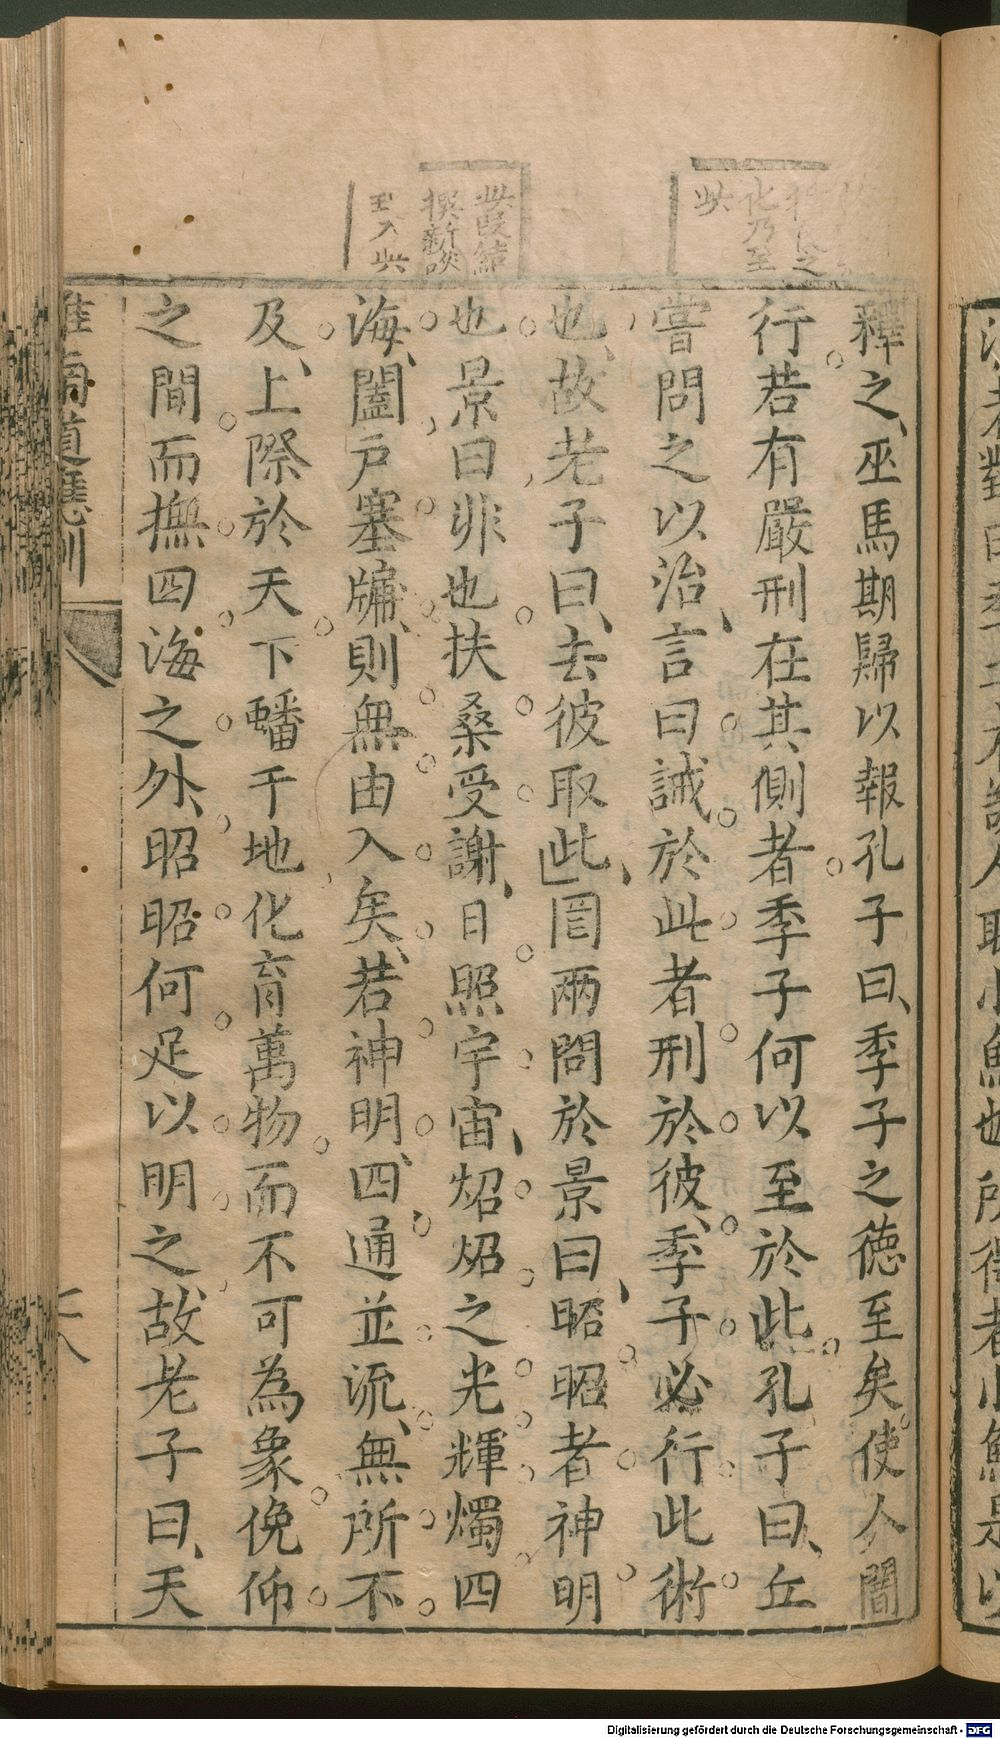 釋之巫馬期歸以報孔子曰季子之德至矣使人闇
行若有嚴刑在其側者季子何以至於此孔子曰丘
嘗問之以治言曰誡於此者刑於彼季子必行此術
也故老子曰去彼取此罔兩問於景曰昭昭者神明
也景曰非也扶桑受謝日照宇宙炤炤之光輝燭四
海闔戶塞牗則無由入矣若神明四通並流無所不
及上際於天下蟠于地化育萬物而不可為象俛仰
之間而撫四海之外昭昭何足以明之故老子曰天
淮南道應訓
十八
化乃至
此
此段結
撰新淡
至入此
Digitalisierung gefördert durch die Deutsche Forschungsgemeinschaft - DFG